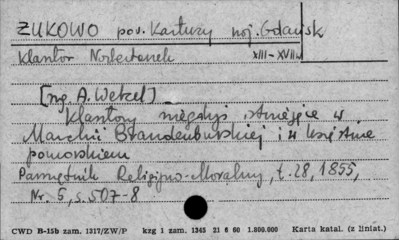 ŻUKOWO pow. Kartuzy woj. Gdańsk
Klasztor Norbertanek XIII-XVIII w
[ng. A. Wetzel]
Klasztory niegdyś istniejące w
Marchii Brandenburskiej i w księstwie
pomorskiem
Pamiętnik Religijno-Moralny, t. 28, 1855,
Nr. 5, s. 507-8
CWD B-15b zam. 1217/ZW/P kzg 1 zam. 1345 21 6 60 1.800.000 Karta katal. (z liniat.)